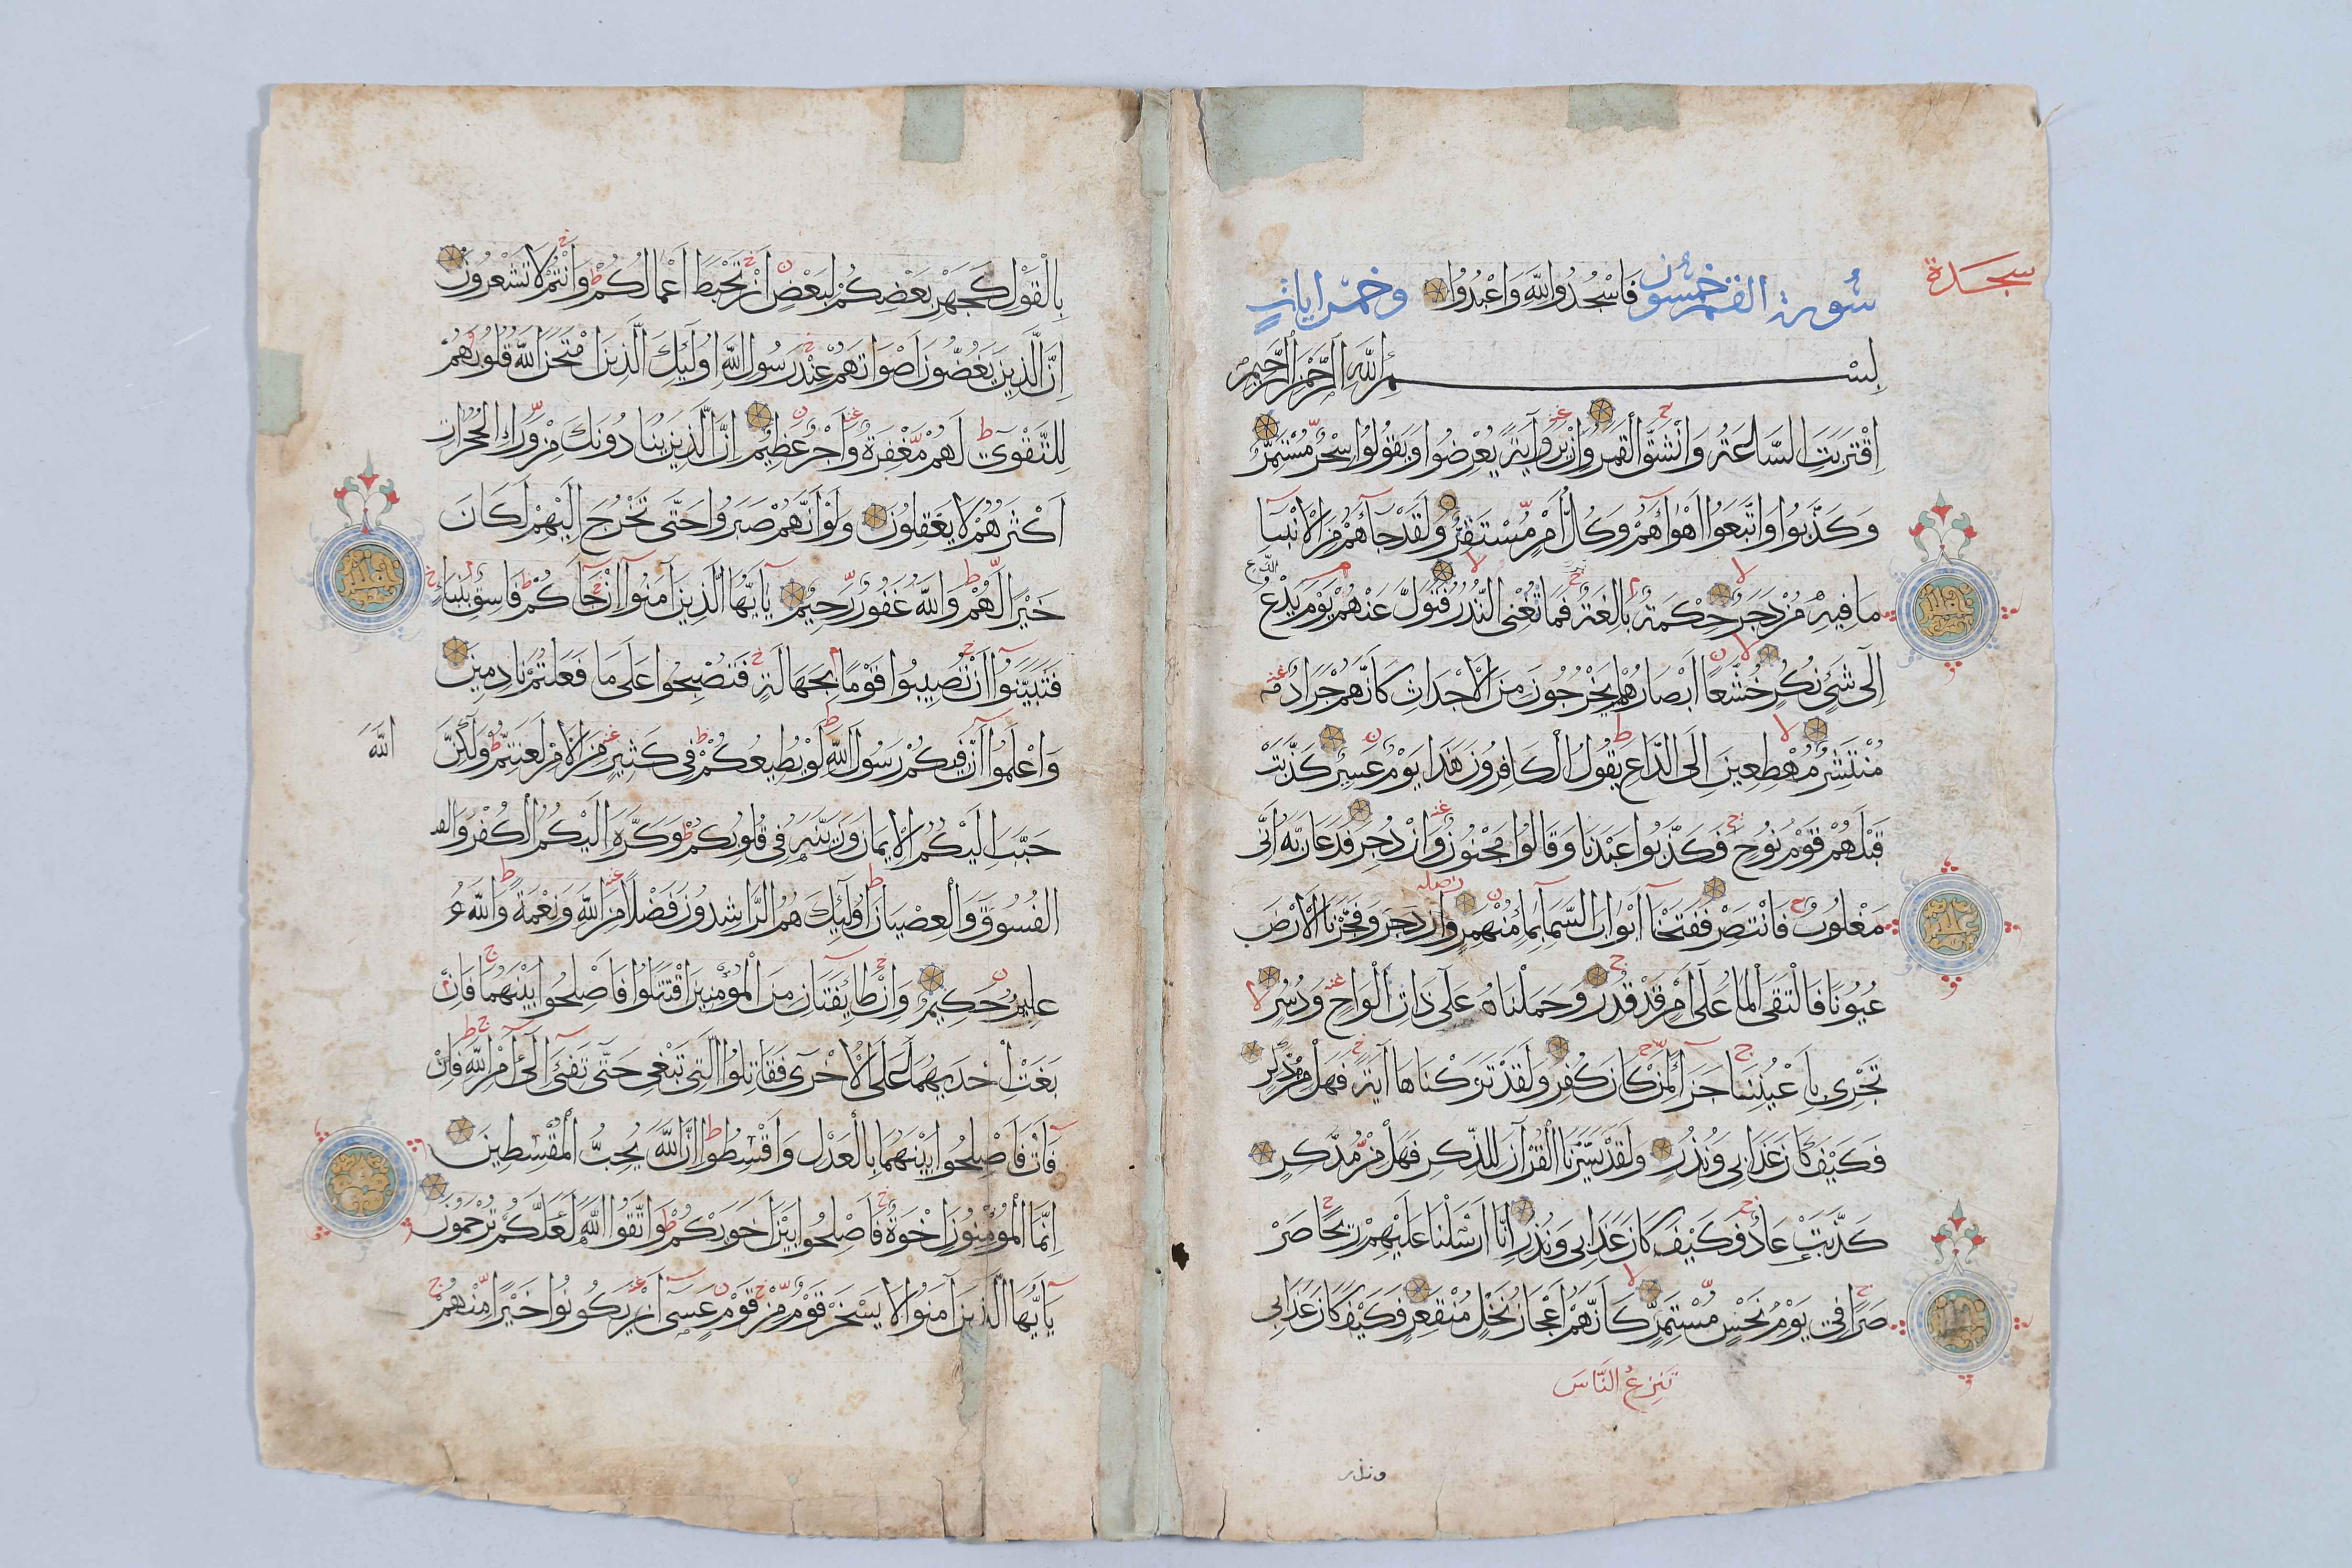 سجدة
سورة القمر خمسون فَاسْجُدُوا لِلَّهِ وَاعْبُدُوا وخمس ايات
بِسْمِ اللَّهِ الرَّحْمَنِ الرَّحِيمِ
اِقْتَرَبَتِ السَّاعَةُ وَانْشَقَّ الْقَمَرُ وَاِنْ يَرَوْا آيَةً يُعْرِضُوا وَيَقُولُوا سِحْرٌ مُسْتَمِرٌّ
وَكَذَّبُوا وَاتَّبَعُوا اَهْوَاءَهُمْ وَكُلُّ اَمْرٍ مُسْتَقِرٌّ وَلَقَدْ جَاءَهُمْ مِنَ الْاَنْبَاءِ
مَا فِيهِ مُزْدَجَرٌ حِكْمَةٌ بَالِغَةٌ فَمَا تُغْنِى النُّذُرُ فَتَوَلَّ عَنْهُمْ يَوْمَ يَدْعُ الداع
اِلَى شَىْءٍ نُكُرٍ خُشَّعًا اَبْصَارُهُمْ يَخْرُجُونَ مِنَ الْاَجْدَاثِ كَاَنَّهُمْ جَرَادٌ
مُنْتَشِرٌ مُهْطِعِينَ اِلَى الدَّاعِ يَقُولُ الْكَافِرُونَ هَذَا يَوْمٌ عَسِرٌ كَذَّبَتْ
قَبْلَهُمْ قَوْمُ نُوحٍ فَكَذَّبُوا عَبْدَنَا وَقَالُوا مَجْنُونٌ وَازْدُجِرَ فَدَعَا رَبَّهُ اَنِّى
مَغْلُوبٌ فَانْتَصِرْ فَفَتَحْنَا اَبْوَابَ السَّمَاءِ بِمَاءٍ مُنْهَمِرٍ وازدجر وَفَجَّرْنَا الْاَرْضَ
عُيُونًا فَالْتَقَى الْمَاءُ عَلَى اَمْرٍ قَدْ قُدِرَ وَحَمَلْنَاهُ عَلَى ذَاتِ اَلْوَاحٍ وَدُسُرٍ
تَجْرِى بِاَعْيُنِنَا جَزَاءً لِمَنْ كَانَ كُفِرَ وَلَقَدْ تَرَكْنَاهَا آيَةً فَهَلْ مِنْ مُدَّكِرٍ
فَكَيْفَ كَانَ عَذَابِى وَنُذُرِ وَلَقَدْ يَسَّرْنَا الْقُرْآنَ لِلذِّكْرِ فَهَلْ مِنْ مُدَّكِرٍ
كَذَّبَتْ عَادٌ فَكَيْفَ كَانَ عَذَابِى وَنُذُرِ اِنَّا اَرْسَلْنَا عَلَيْهِمْ رِيحًا صَرْ
صَرًا فِى يَوْمِ نَحْسٍ مُسْتَمِرٍّ كَاَنَّهُمْ اَعْجَازُ نَخْلٍ مُنْقَعِرٍ فَكَيْفَ كَانَ عَذَابِى
تَنْزِعُ النَّاسَ
ونذر
بِالْقَوْلِ كَجَهْرِ بَعْضِكُمْ لِبَعْضٍ اَنْ تَحْبَطَ اَعْمَالُكُمْ وَاَنْتُمْ لَا تَشْعُرُونَ
اِنَّ الَّذِينَ يَغُضُّونَ اَصْوَاتَهُمْ عِنْدَ رَسُولِ اللَّهِ اُولَئِكَ الَّذِينَ امْتَحَنَ اللَّهُ قُلُوبَهُمْ
لِلتَّقْوَى لَهُمْ مَغْفِرَةٌ وَاَجْرٌ عَظِيمٌ اِنَّ الَّذِينَ يُنَادُونَكَ مِنْ وَرَاءِ الْحُجُرَاتِ
اَكْثَرُهُمْ لَا يَعْقِلُونَ وَلَوْ اَنَّهُمْ صَبَرُوا حَتَّى تَخْرُجَ اِلَيْهِمْ لَكَانَ
خَيْرًا لَهُمْ وَاللَّهُ غَفُورٌ رَحِيمٌ يَا اَيُّهَا الَّذِينَ آمَنُوا اِنْ جَاءَكُمْ فَاسِقٌ بِنَبَاءٍ
فَتَبَيَّنُوا اَنْ تُصِيبُوا قَوْمًا بِجَهَالَةٍ فَتُصْبِحُوا عَلَى مَا فَعَلْتُمْ نَادِمِينَ
وَاعْلَمُوا اَنَّ فِيكُمْ رَسُولَ اللَّهِ لَوْ يُطِيعُكُمْ فِى كَثِيرٍ مِنَ الْاَمْرِ لَعَنِتُّمْ وَلَكِنَّ اللَّهَ
حَبَّبَ اِلَيْكُمُ الْاِيمَانَ وَزَيَّنَهُ فِى قُلُوبِكُمْ وَكَرَّهَ اِلَيْكُمُ الْكُفْرَ وَالفـ
الفُسُوقَ وَالْعِصْيَانَ اُولَئِكَ هُمُ الرَّاشِدُونَ فَضْلًا مِنَ اللَّهِ وَنِعْمَةً وَاللَّهُ عـ
عَلِيمٌ حَكِيمٌ وَاِنْ طَائِفَتَانِ مِنَ الْمُؤْمِنِينَ اقْتَتَلُوا فَاَصْلِحُوا بَيْنَهُمَا فَاِنْ
بَغَتْ اِحْدَيهُمَا عَلَى الْاُخْرَى فَقَاتِلُوا الَّتِى تَبْغِى حَتَّى تَفِىءَ اِلَى اَمْرِ اللَّهِ فَاِنْ
فَاءَتْ فَاَصْلِحُوا بَيْنَهُمَا بِالْعَدْلِ وَاَقْسِطُوا اِنَّ اللَّهَ يُحِبُّ الْمُقْسِطِينَ
اِنَّمَا الْمُؤْمِنُونَ اِخْوَةٌ فَاَصْلِحُوا بَيْنَ اَخَوَيْكُمْ وَاتَّقُوا اللَّهَ لَعَلَّكُمْ تُرْحَمُونَ
يَا اَيُّهَا الَّذِينَ آمَنُوا لَا يَسْخَرْ قَوْمٌ مِنْ قَوْمٍ عَسَى اَنْ يَكُونُوا خَيْرًا مِنْهُمْ